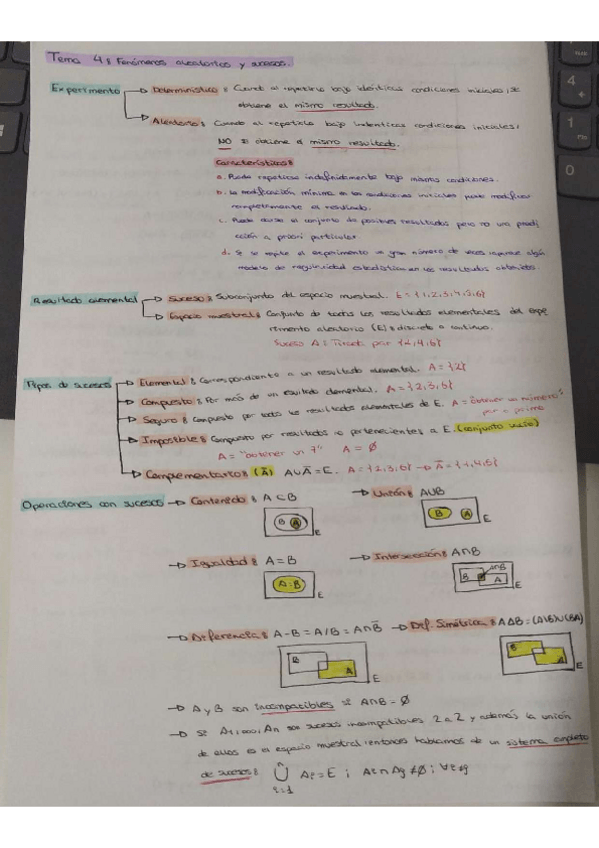 Tema 4: Fenómenos aleatorios y sucesos.
Experimento → Determinístico: Cuando al repetirlo bajo idénticas condiciones iniciales, se
obtiene el mismo resultado.
→ Aleatorio: Cuando al repetirlo bajo idénticas condiciones iniciales,
NO se obtiene el mismo resultado.
Características:
a. Puede repetirse indefinidamente bajo mismas condiciones.
b. La modificación mínima en las condiciones iniciales puede modificar
completamente el resultado.
c. Puede el conjunto de posibles resultados pero no una predi
cción a priori particular.
d. Si se repite el experimento un gran número de veces aparece algún
modelo de regularidad estadística en los resultados obtenidos.
Resultado elemental → Suceso: Subconjunto del espacio muestral. E = {1,2,3,4,5,6}
→ Espacio muestral: Conjunto de todos los resultados elementales del expe
rimento aleatorio (E): discreto o continuo.
Suceso A = par {2,4,6}
Tipos de sucesos → Elemental: Correspondiente a un resultado elemental. A = {2}
→ Compuesto: Por más de un resultado elemental. A = {2,3,5}
→ Seguro: Compuesto por todos los resultados elementales de E. A = obtener un número
par o primo
→ Imposible: Compuesto por resultados no pertenecientes a E. (conjunto vacío)
A = "obtener un 7" A = ∅
→ Complementario: (Ā) A∪Ā = E. A = {2,3,6} → Ā = {1,4,5}
Operaciones con sucesos → Contenido: A ⊂ B → Unión: A∪B
B A E B A E
→ Igualdad: A = B → Intersección: A∩B
A=B E B A∩B A E
→ Diferencia: A - B = A/B = A∩B̄ → Dif. Simétrica: A∆B = (A\B)∪(B\A)
B A E B A E
→ A y B son incompatibles si A∩B = ∅
→ Si A1,...,An son sucesos incompatibles 2 a 2 y además la unión
de ellos es el espacio muestral entonces hablamos de un sistema completo
de sucesos: n ∪ i=1 Ai = E ; Ai ∩ Aj ≠ ∅ ; ∀i≠j